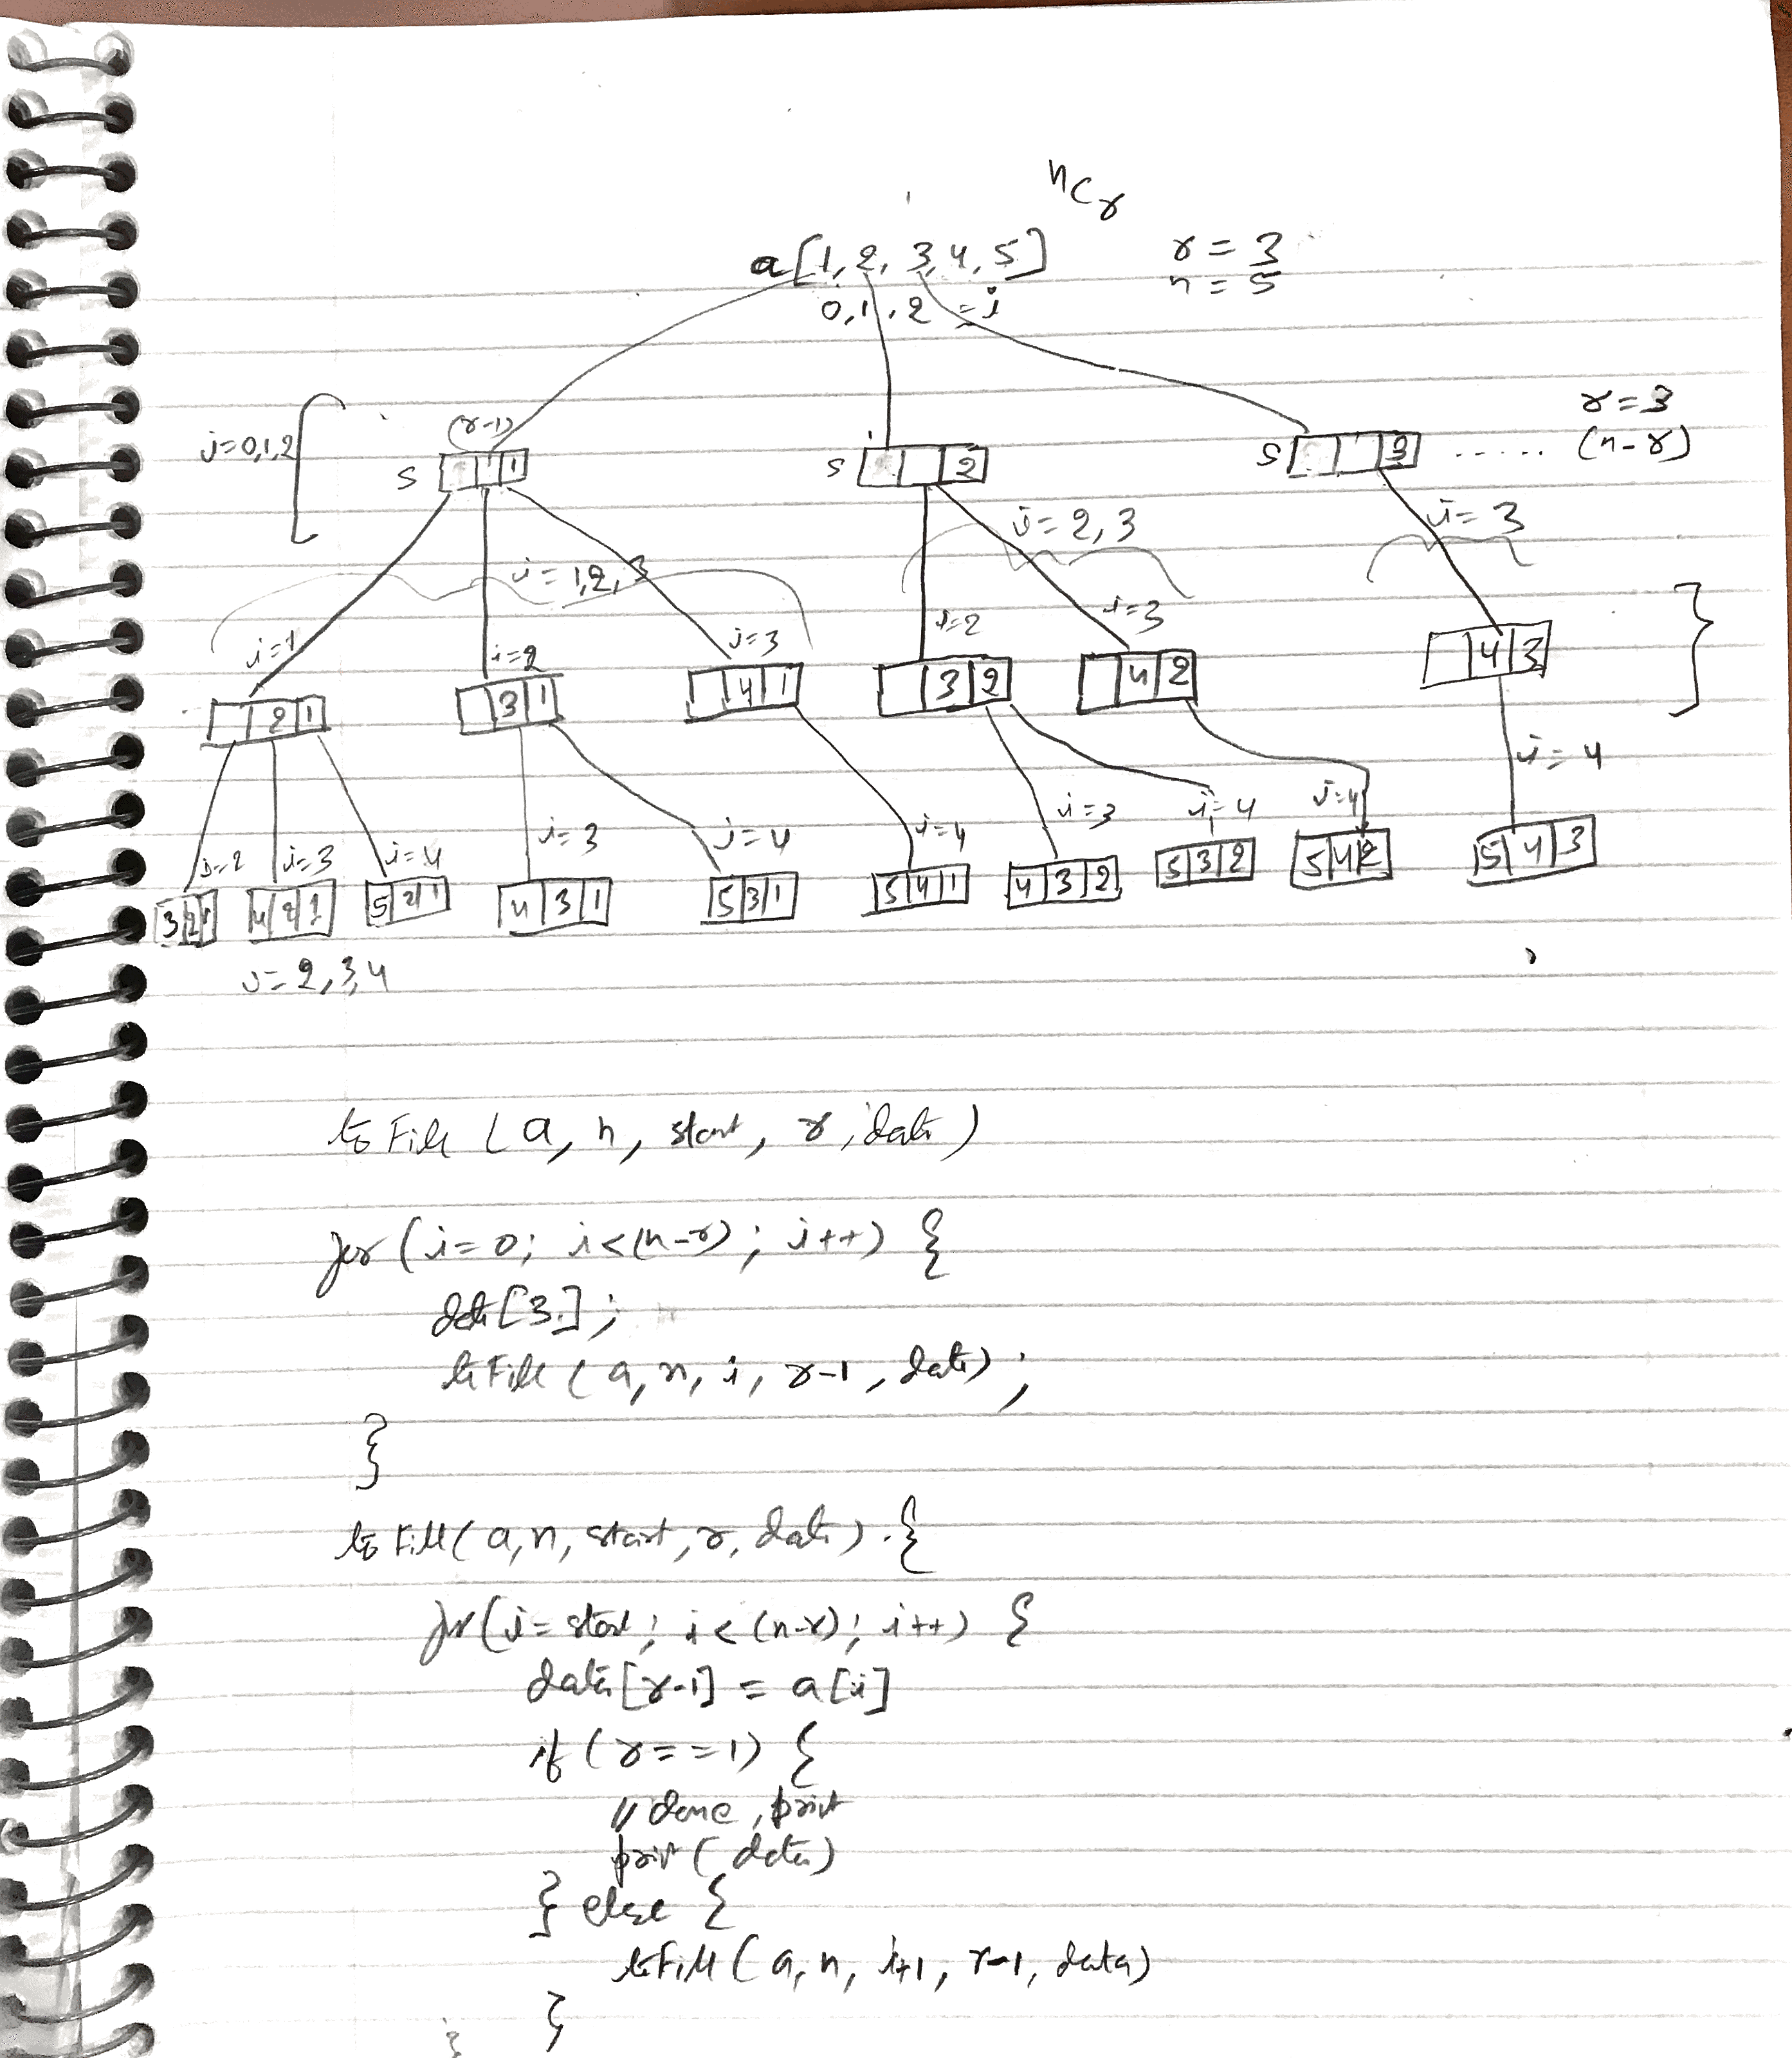 nCr
a[1, 2, 3, 4, 5]
r = 3
0, 1, 2 = i
n = 5
r = 3
i=0,1,2
(r-1)
S 1
S 2
S 3 ..... (n-r)
i= 2, 3
i= 3
i= 1,2, 3
i=1
i=2
i=3
i=2
i=3
2 1
3 1
4 1
3 2
4 2
4 3
i= 4
i=2
i=3
i=4
i= 3
i= 4
i=4
i=3
i= 4
i=4
3 2 1
4 2 1
5 2 1
4 3 1
5 3 1
5 4 1
4 3 2
5 3 2
5 4 2
5 4 3
i= 2, 3, 4
toFill (a, n, start, r, data)
for (i=0; i<(n-r); i++) {
data[3];
toFill (a, n, i, r-1, data);
}
toFill(a, n, start, r, data) {
for(i= start; i< (n-r); i++) {
data[r-1] = a[i]
if (r==1) {
// done, print
print(data)
} else {
toFill (a, n, i+1, r-1, data)
}
}